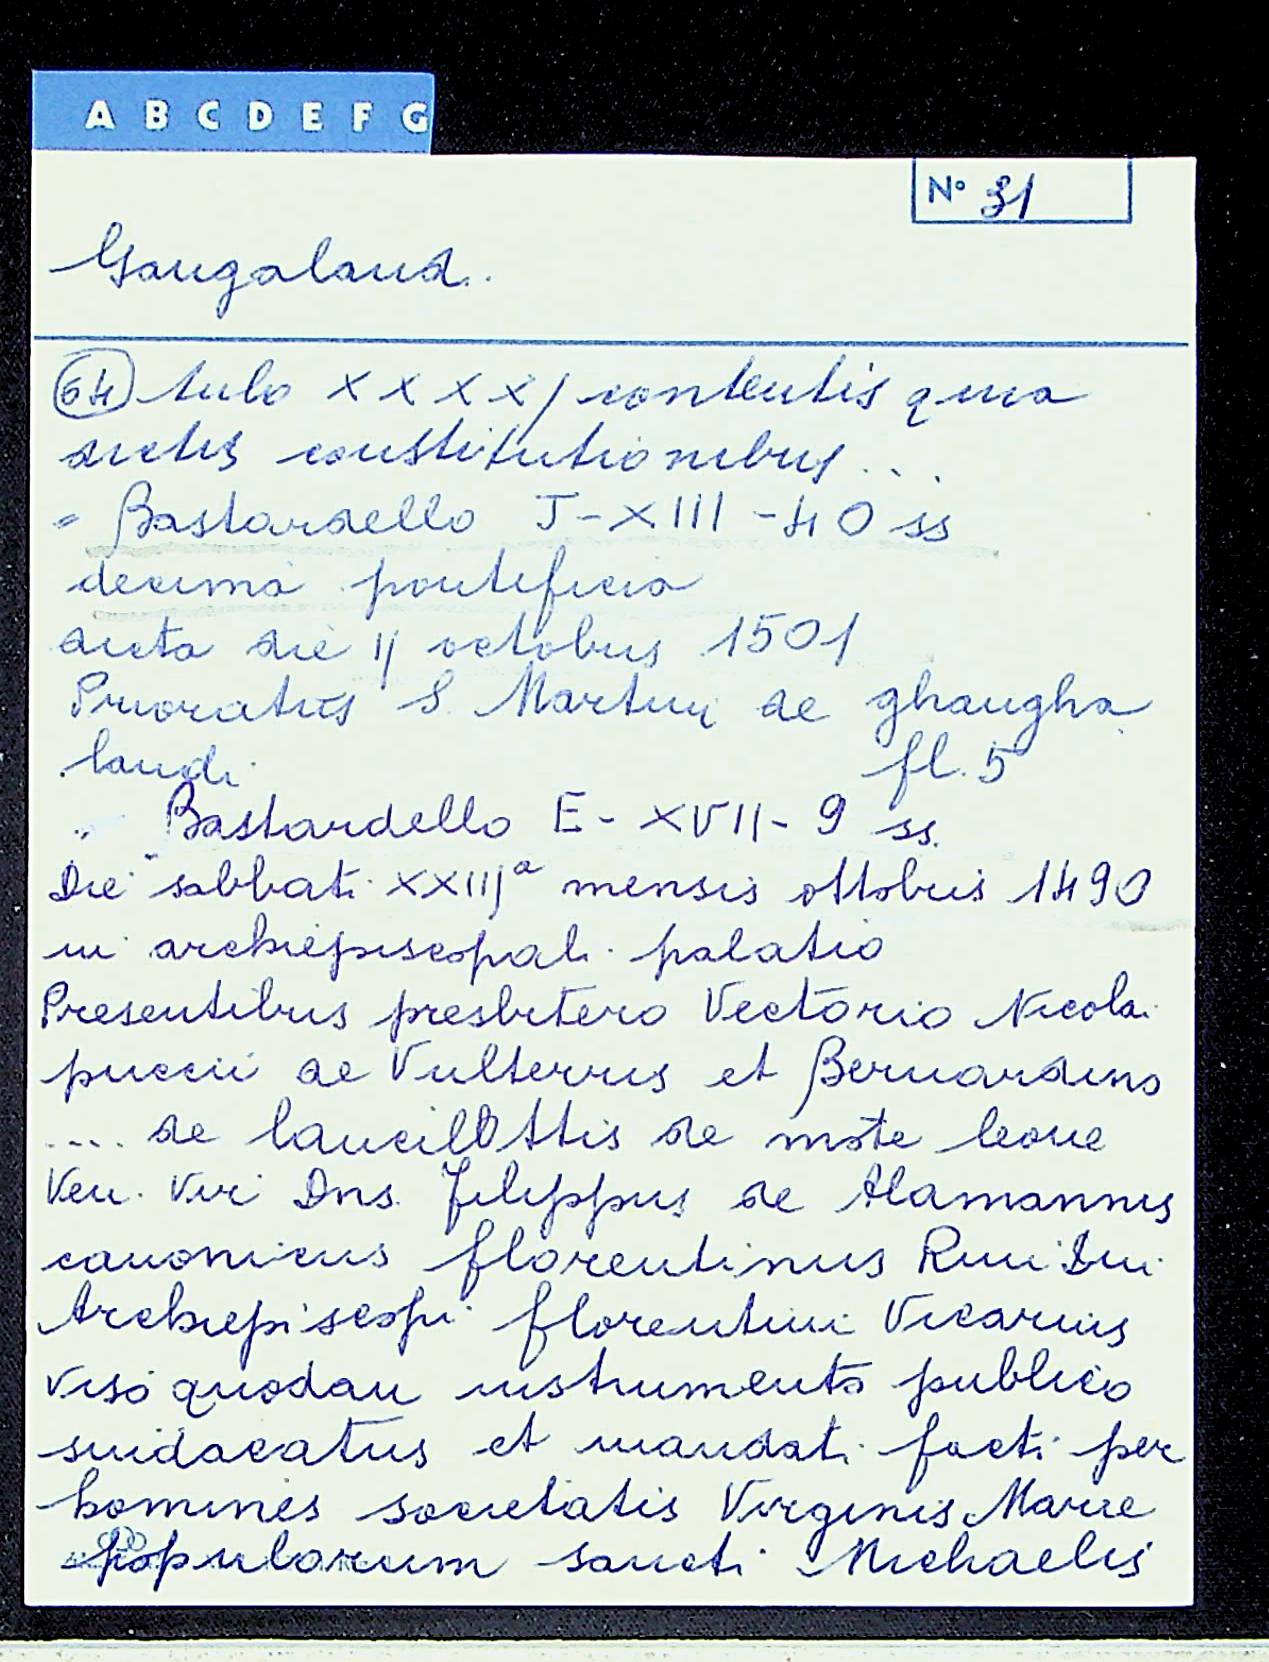 A B C D E F G
N° 31
Gangaland.
(64) tulo XXXX/ contentis quia
dictis constitutionibus ...
= Bastardello J-XIII-40 ss
decima pontificia
dicta die 1j octobris 1501
Prioratus S. Martini de ghangha
landi fl. 5
" Bastardello E-XVII-9 ss.
Die sabbati XXIIJª mensis ottobris 1490
in archiepiscopali palatio
Presentibus presbitero Vectorio Nicolai
puccii de Vulterris et Bernardino
.... de lancilottis de mōte leone
Ven. Vir Dns. Filippus de Alamannis
canonicus florentinus Rmi Dni
Archiepiscopi florentini Vicarius
viso quodam instrumento publico
sindacatus et mandati facti per
homines societatis Virginis Marie
popularum sancti Michaelis